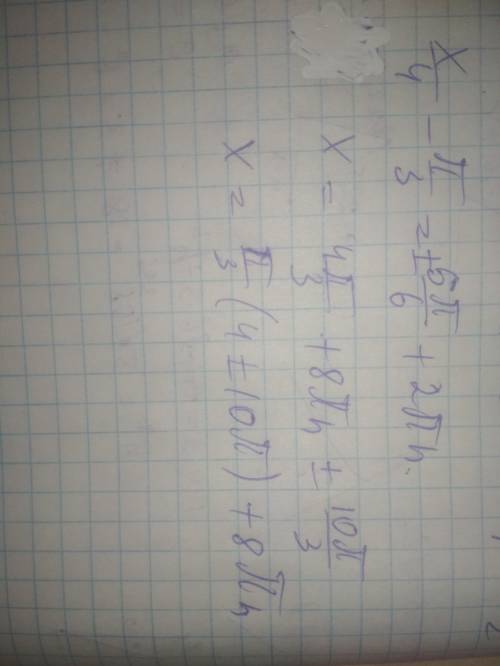 x/4 - π/3 = ± 5π/6 + 2πn.
x = 4π/3 + 8πn ± 10π/3
x = π/3 (4 ± 10π) + 8πn